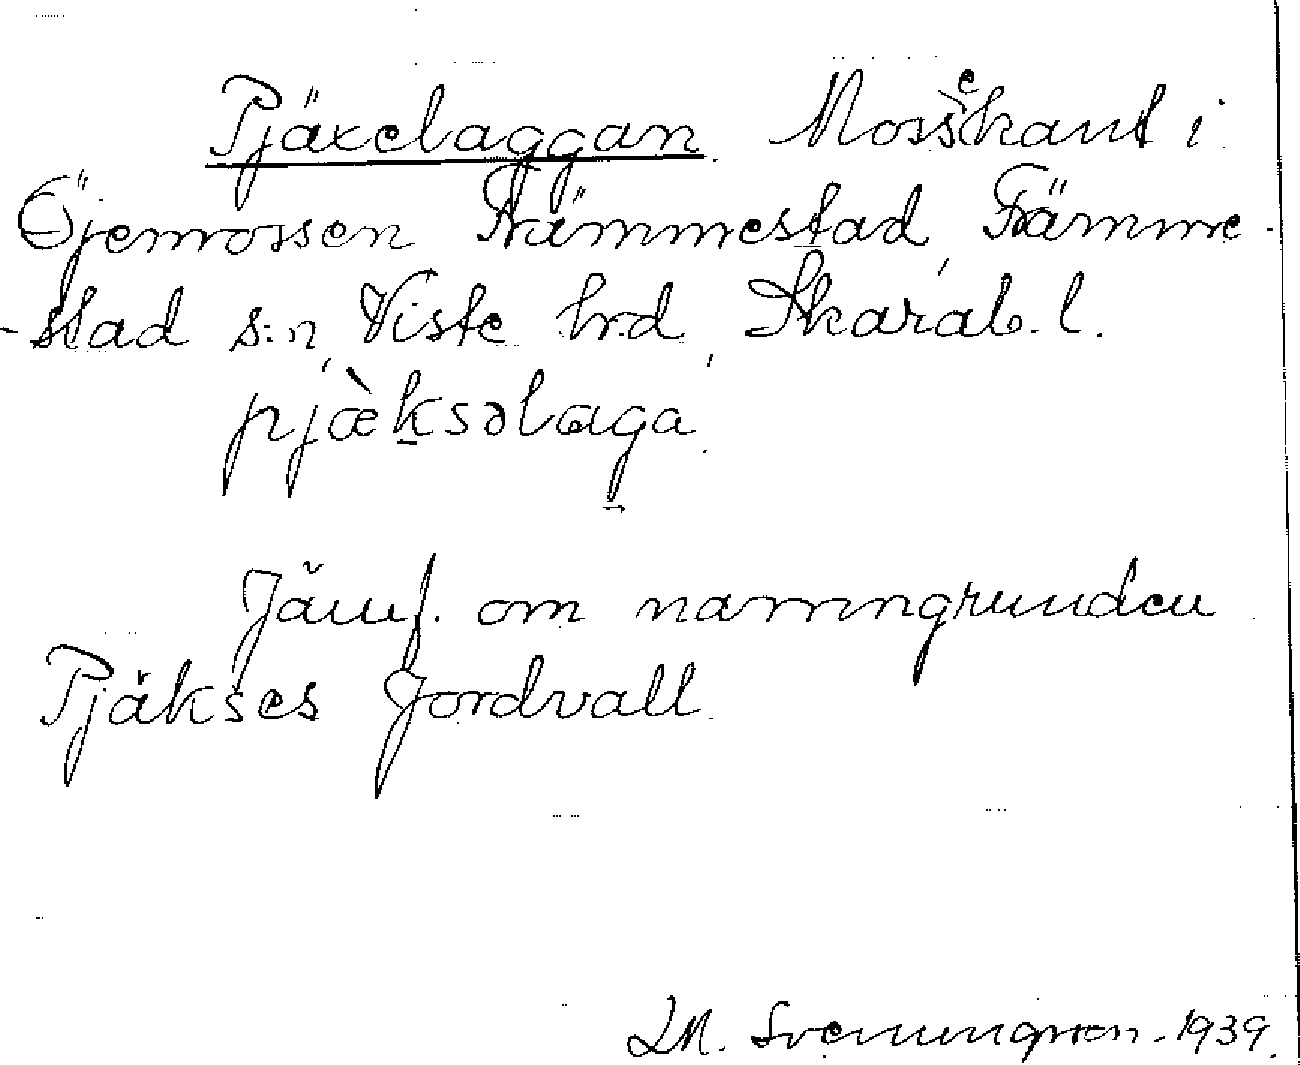 Pjäxelaggan. Mossekant i
Öjemossen Främmestad, Främme-
-stad s:n, Viste hrd, Skarab. l.
pjæ̀ksəlaga.
Jämf. om namngrunden
Pjäkses Jordvall.
L.M. Svenungsson. 1939.